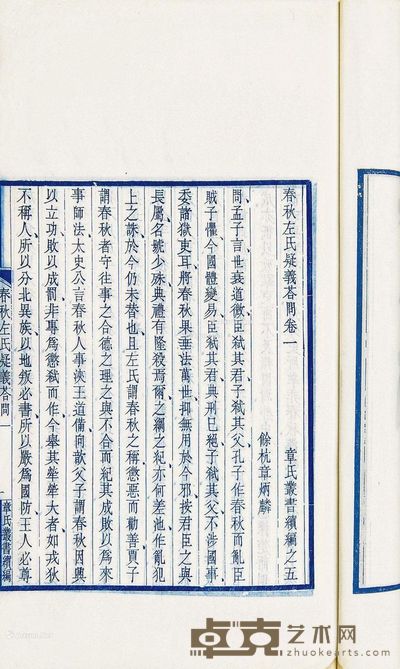 春秋左氏疑義荅問卷一
章氏叢書續編之五
餘杭章炳麟
問孟子言世衰道微臣弒其君子弒其父孔子作春秋而亂臣
賊子懼今國體變易臣弒其君典刑已絕子弒其父不涉國事
委諸獄吏耳將春秋果垂法萬世抑無用於今邪按君臣之與
長屬名號少殊典禮有隆殺焉爾之綱之紀亦何差池作亂犯
上之誅於今仍未替也且左氏謂春秋之稱懲惡而勸善賈子
謂春秋者守往事之合德之理之與不合而紀其成敗以爲來
事師法太史公言春秋人事浹王道備向歆父子謂春秋因興
以立功敗以成罰非專爲懲弒而作今舉其犖犖大者如戎狄
不稱人所以分北異族以地叛必書所以嚴爲國防王人必尊
春秋左氏疑義荅問一
章氏叢書續編
卓克艺术网
www.zhuokearts.com